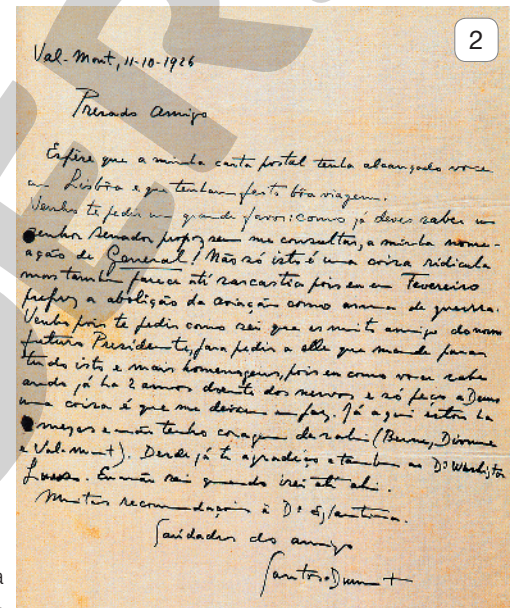 2
Val-Mont, 11-10-1926
Prezado Amigo
Espero que a minha carta postal tenha alcançado voce
em Lisbôa e que tenham feito bôa viagem.
Venho te pedir um grande favor: como já deves saber um
senhor Senador propoz sem me consultar, a minha nome-
ação de General! Não só isto é uma coiza ridicula
mas tambem parece até sarcastica pois eu em Fevereiro
propuz a abolição da aviação como arma de guerra.
Venho pois te pedir como sei que es muito amigo do nosso
futuro Presidente, para pedir a elle que mande parar
tudo isto e mais homenagens, pois eu como voce sabe
ando já ha 2 annos doente dos nervos e só peço a Deus
uma coiza é que me deixem em paz. Já aqui estou ha
mezes e não tenho coragem de sahir (Berne, Divonne
e Val-Mont). Desde já te agradeço e tambem ao Dr Washington
Luis. Eu não sei quando irei até ahi.
Muitas recommendações à Da Eglantina.
Saúdades do amigo
Santos=Dumont
a